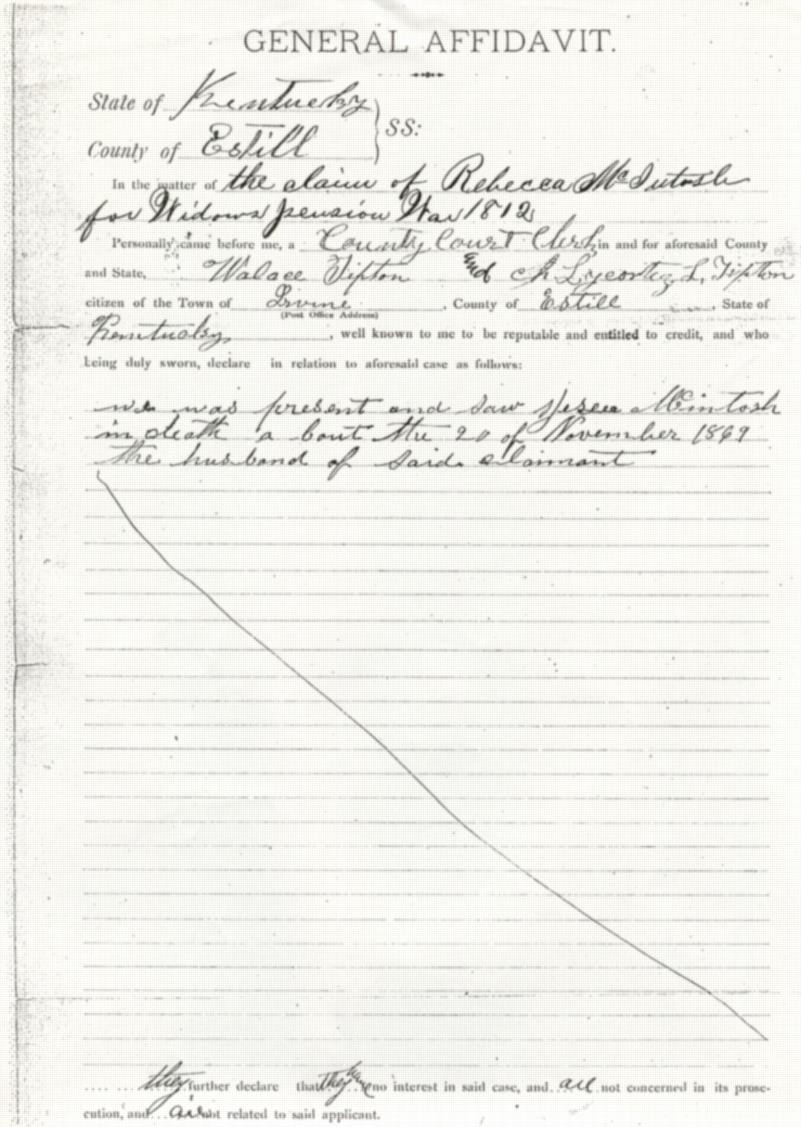 GENERAL AFFIDAVIT.
State of Kentucky
SS:
County of Estill
In the matter of the claim of Rebecca McIntosh
for Widows pension War 1812
Personally came before me, a County Court Clerk in and for aforesaid County
and State, Walace Tipton and L. Tipton
citizen of the Town of Irvine, County of Estill, State of
(Post Office Address)
Kentucky, well known to me to be reputable and entitled to credit, and who
being duly sworn, declare in relation to aforesaid case as follows:
we was present and saw McIntosh
in death a bout the 20 of November 1869
the husband of said claimant
they further declare that they have no interest in said case, and are not concerned in its prose-
cution, and air not related to said applicant.